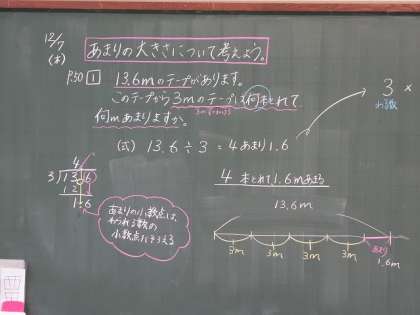 12/7
(木)
あまりの大きさについて考えよう。
P.50 1
13.6mのテープがあります。
このテープから3mのテープは何本とれて
何mあまりますか。
(式) 13.6÷3=4あまり1.6
3 ×
小数
4本とれて1.6mあまる
4
3 13.6
12
1.6
あまりの小数点は、
わられる数の
小数点にそろえる
13.6m
3m 3m 3m 3m あまり 1.6m